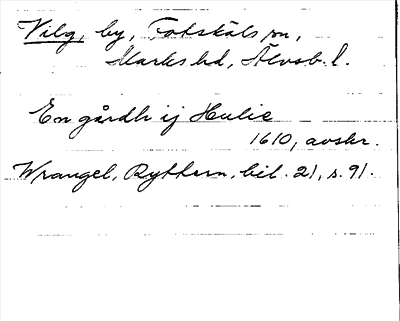 Vilg, by, Fotskäls sn,
Marks hd, Älvsb. l.
En gårdh ij Hulie
1610, avskr.
Wrangel, Rytkern, bil. 21, s. 91.